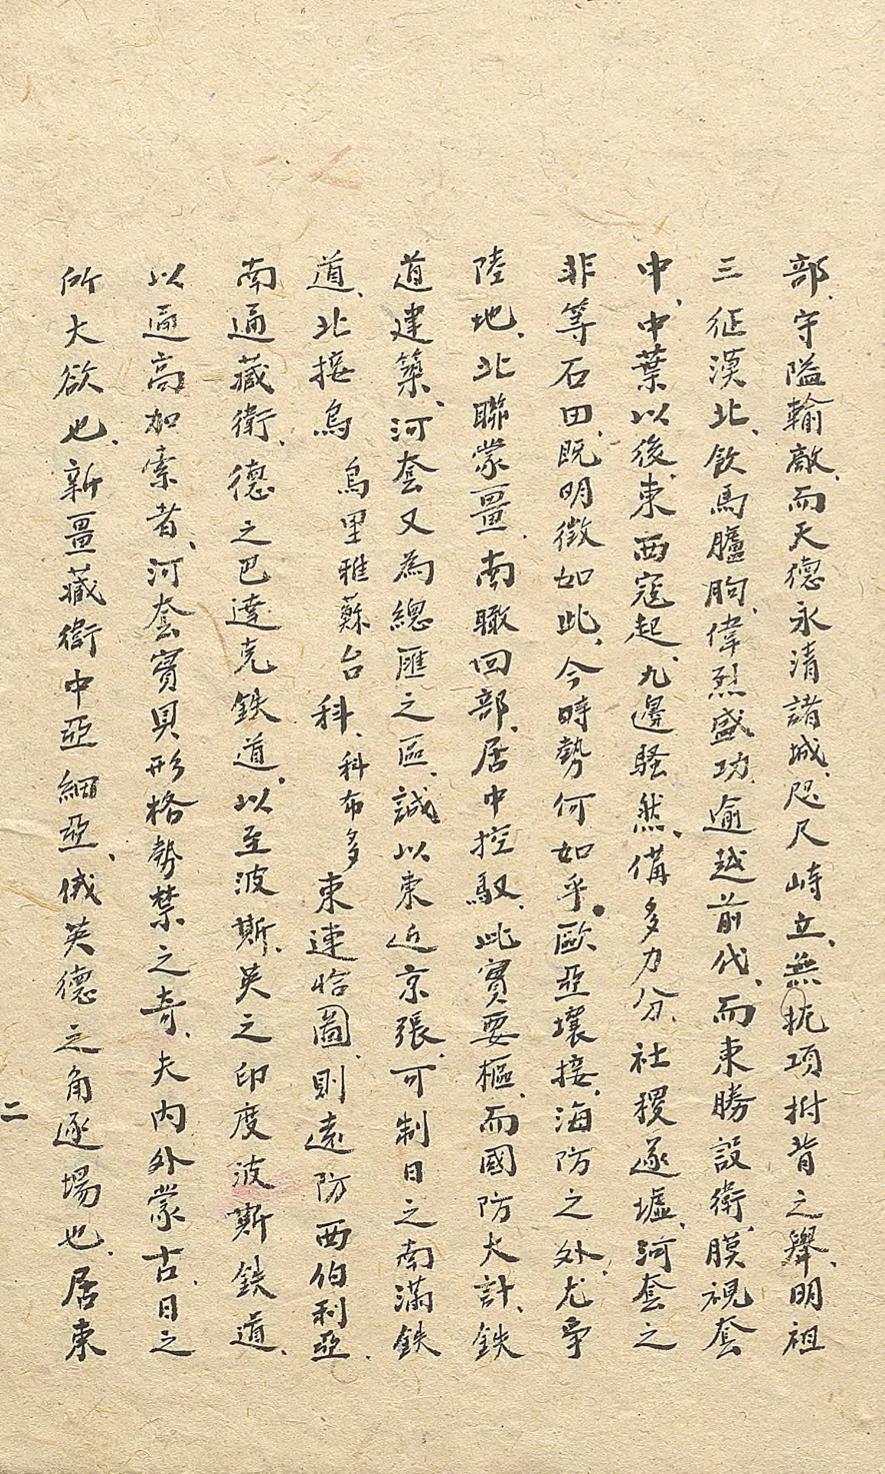 部、守隘輸敵、而天德永清諸城、咫尺峙立、無扼項拊背之舉、明祖
三征漠北、飲馬臚朐、偉烈盛功、逾越前代、而東勝設衛、膜視套
中、中葉以後、東西寇起、九邊騷然、備多力分、社稷遂墟、河套之
非等石田、既明徵如此、今時勢何如乎、歐亞壤接、海防之外、尤爭
陸地、北聯蒙疆、南瞰回部、居中控馭、此實要樞、而國防大計、鉄
道建築、河套又為總匯之區、誠以東近京張、可制日之南滿鉄
道、北接烏 烏里雅蘇台 科、科布多 東連恰圖、則遠防西伯利亞、
南通藏衛、德之巴達克鉄道、以至波斯、英之印度波斯鉄道、
以逼高加索者、河套實具形格勢禁之奇、夫內外蒙古、日之
所大欲也、新疆藏衛中亞細亞、俄英德之角逐場也、居東
二